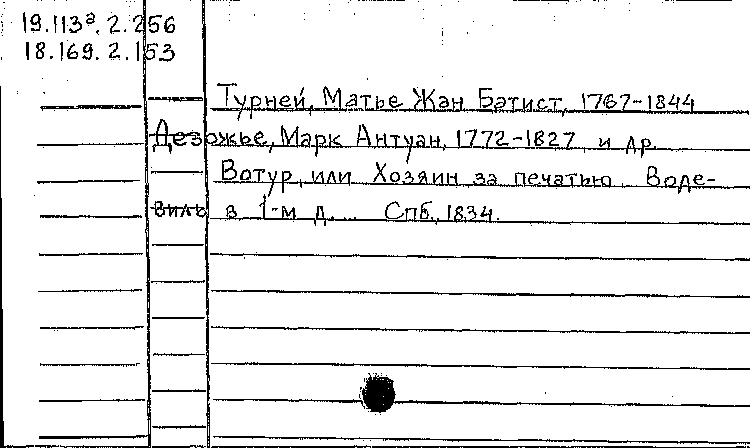 19.113ª.2.256
18.169.2.153
Турней, Матье Жан Батист, 1767-1844
Дезожье, Марк Антуан, 1772-1827 и др.
Вотур, или Хозяин за печатью. Воде-
виль в 1-м д. ... Спб, 1834.